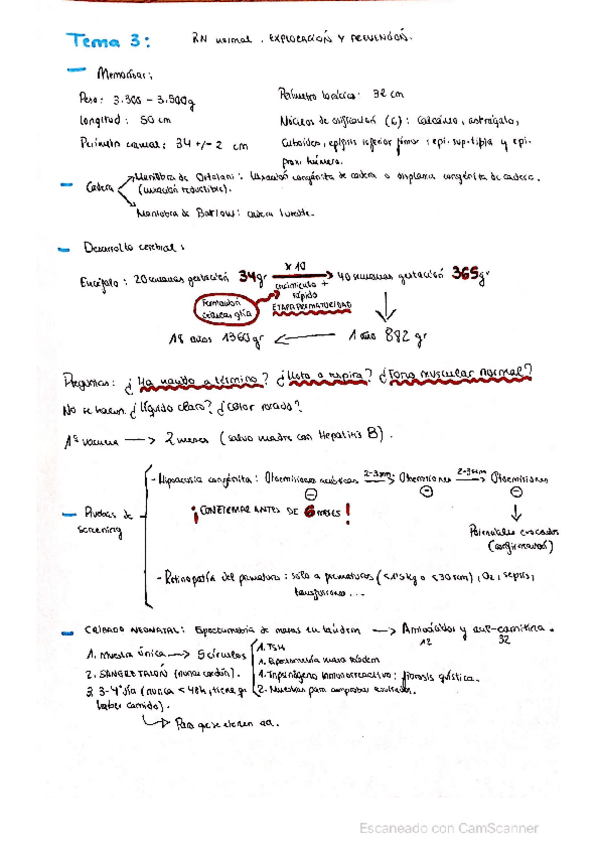 Tema 3: RN normal. EXPLORACIÓN Y PREVENCIÓN.
- Memorizar:
Peso: 3.300 - 3.500g
Longitud: 50 cm
Perímetro craneal: 34 +/- 2 cm
Perímetro torácico: 32 cm
Núcleos de osificación (6): calcáneo, astrágalo,
cuboides, epífisis inferior fémur; epi. sup. tibia y epi.
prox. húmero.
- Cadera
Maniobra de Ortolani: luxación congénita de cadera o displasia congénita de cadera.
(luxación reductible).
Maniobra de Barlow: cadera luxable.
- Desarrollo cerebral:
x 10
Encéfalo: 20 semanas gestación 34gr → 40 semanas gestación 365gr
crecimiento +
rápido
ETAPA PREMATURIDAD
Formación
células glía
18 años 1360gr ← 1 año 882 gr
Preguntas: ¿Ha nacido a término? ¿Llora o respira? ¿Tono muscular normal?
No se hacen ¿líquido claro? ¿color rosado?
1ª vacuna → 2 meses (salvo madre con Hepatitis B).
- Pruebas de
screening
- Hipoacusia congénita: Otoemisiones acústicas 2-3sem → Otoemisiones 2-3sem → Otoemisiones
¡CONFIRMAR ANTES DE 6 MESES!
Potenciales evocados
(confirmación)
- Retinopatía del prematuro: sólo a prematuros (<1'5kg o <30sem), O2, sepsis,
transfusiones...
- CRIBADO NEONATAL: Espectrometría de masas en tándem → Aminoácidos y acil-carnitina.
12
32
1. Muestra única → 5 círculos
2. SANGRE TALÓN (nunca cordón).
3. 3-4º día (nunca <48h, tiene q
haber comido).
Para que se eleven aa.
1. TSH
1. Espectrometría masa tándem
1. Tripsinógeno inmunorreactivo: fibrosis quística.
2. Muestras para comprobar resultados.
Escaneado con CamScanner